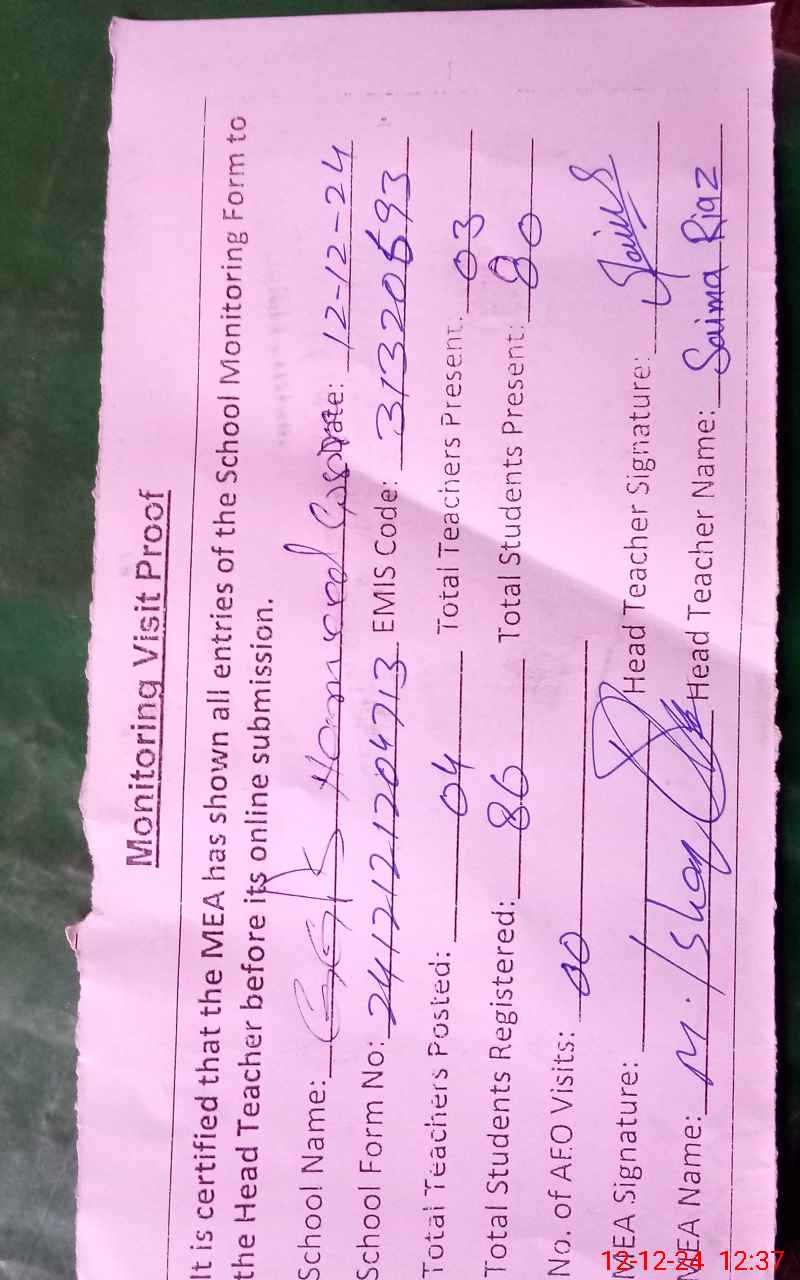 Monitoring Visit Proof
It is certified that the MEA has shown all entries of the School Monitoring Form to
the Head Teacher before its online submission.
School Name: GGPS Date: 12-12-24
School Form No: 2412121204713 EMIS Code: 31320693
Total Teachers Posted: 04 Total Teachers Present: 03
Total Students Registered: 86 Total Students Present: 80
No. of AEO Visits: 00
MEA Signature: Head Teacher Signature:
MEA Name: M. Ishaq Head Teacher Name: Saima Riaz
12-12-24 12:37